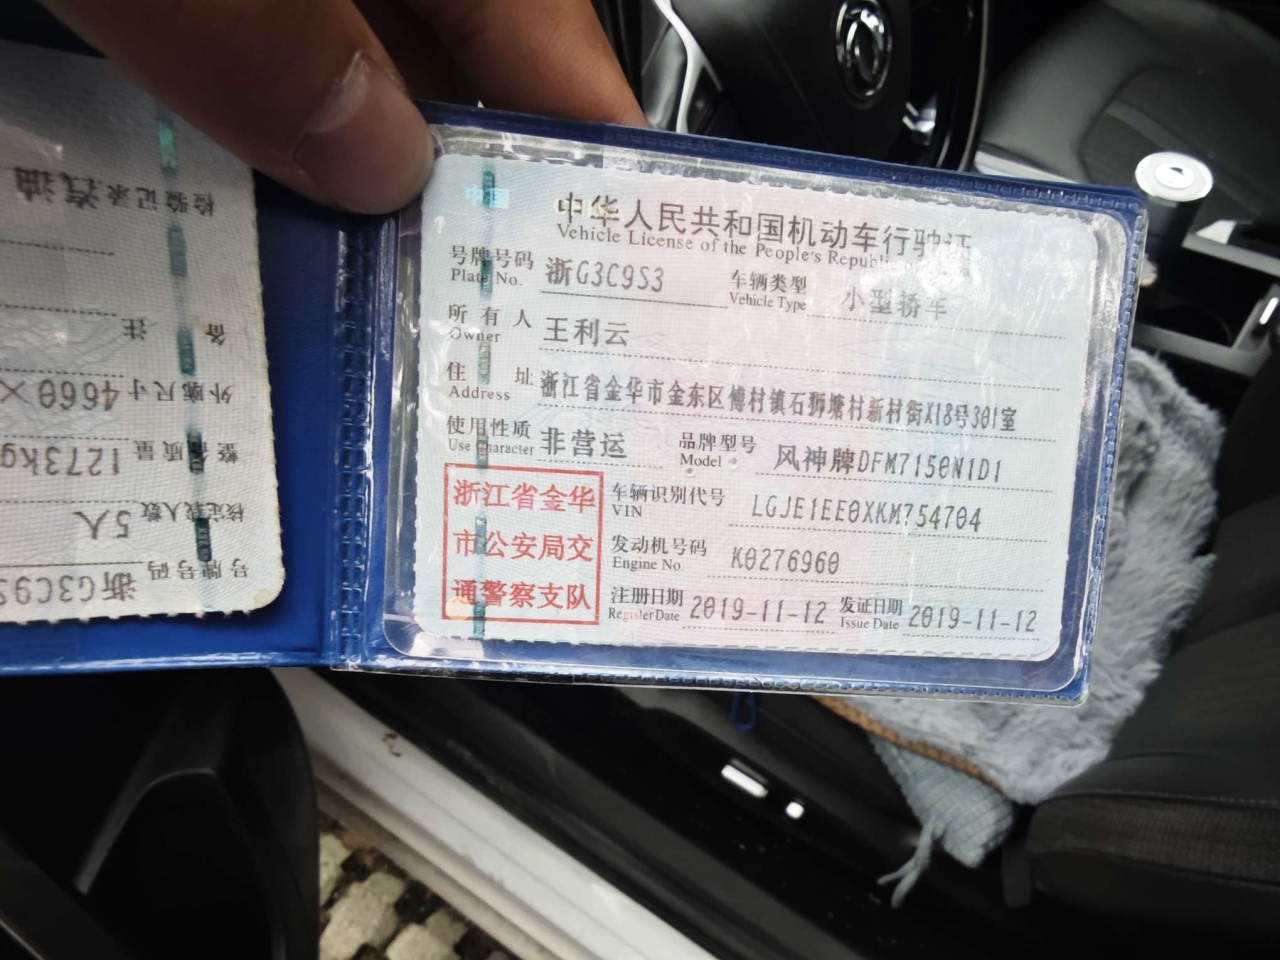 中国
中华人民共和国机动车行驶证
Vehicle License of the People's Republi
号牌号码 浙G3C9S3 车辆类型 小型轿车
Plate No. Vehicle Type
所有人 王利云
Owner
住址 浙江省金华市金东区傅村镇石狮塘村新村街X18号301室
Address
使用性质 非营运 品牌型号 风神牌DFM7150N1D1
Use Character Model
浙江省金华
市公安局交
通警察支队
车辆识别代号 LGJE1EE0XKM754704
VIN
发动机号码 K0276960
Engine No.
注册日期 2019-11-12 发证日期 2019-11-12
Register Date Issue Date
号牌号码 浙G3C9S
核定载人数 5人
整备质量 1273kg
外廓尺寸 4660×
备注
检验记录 汽油